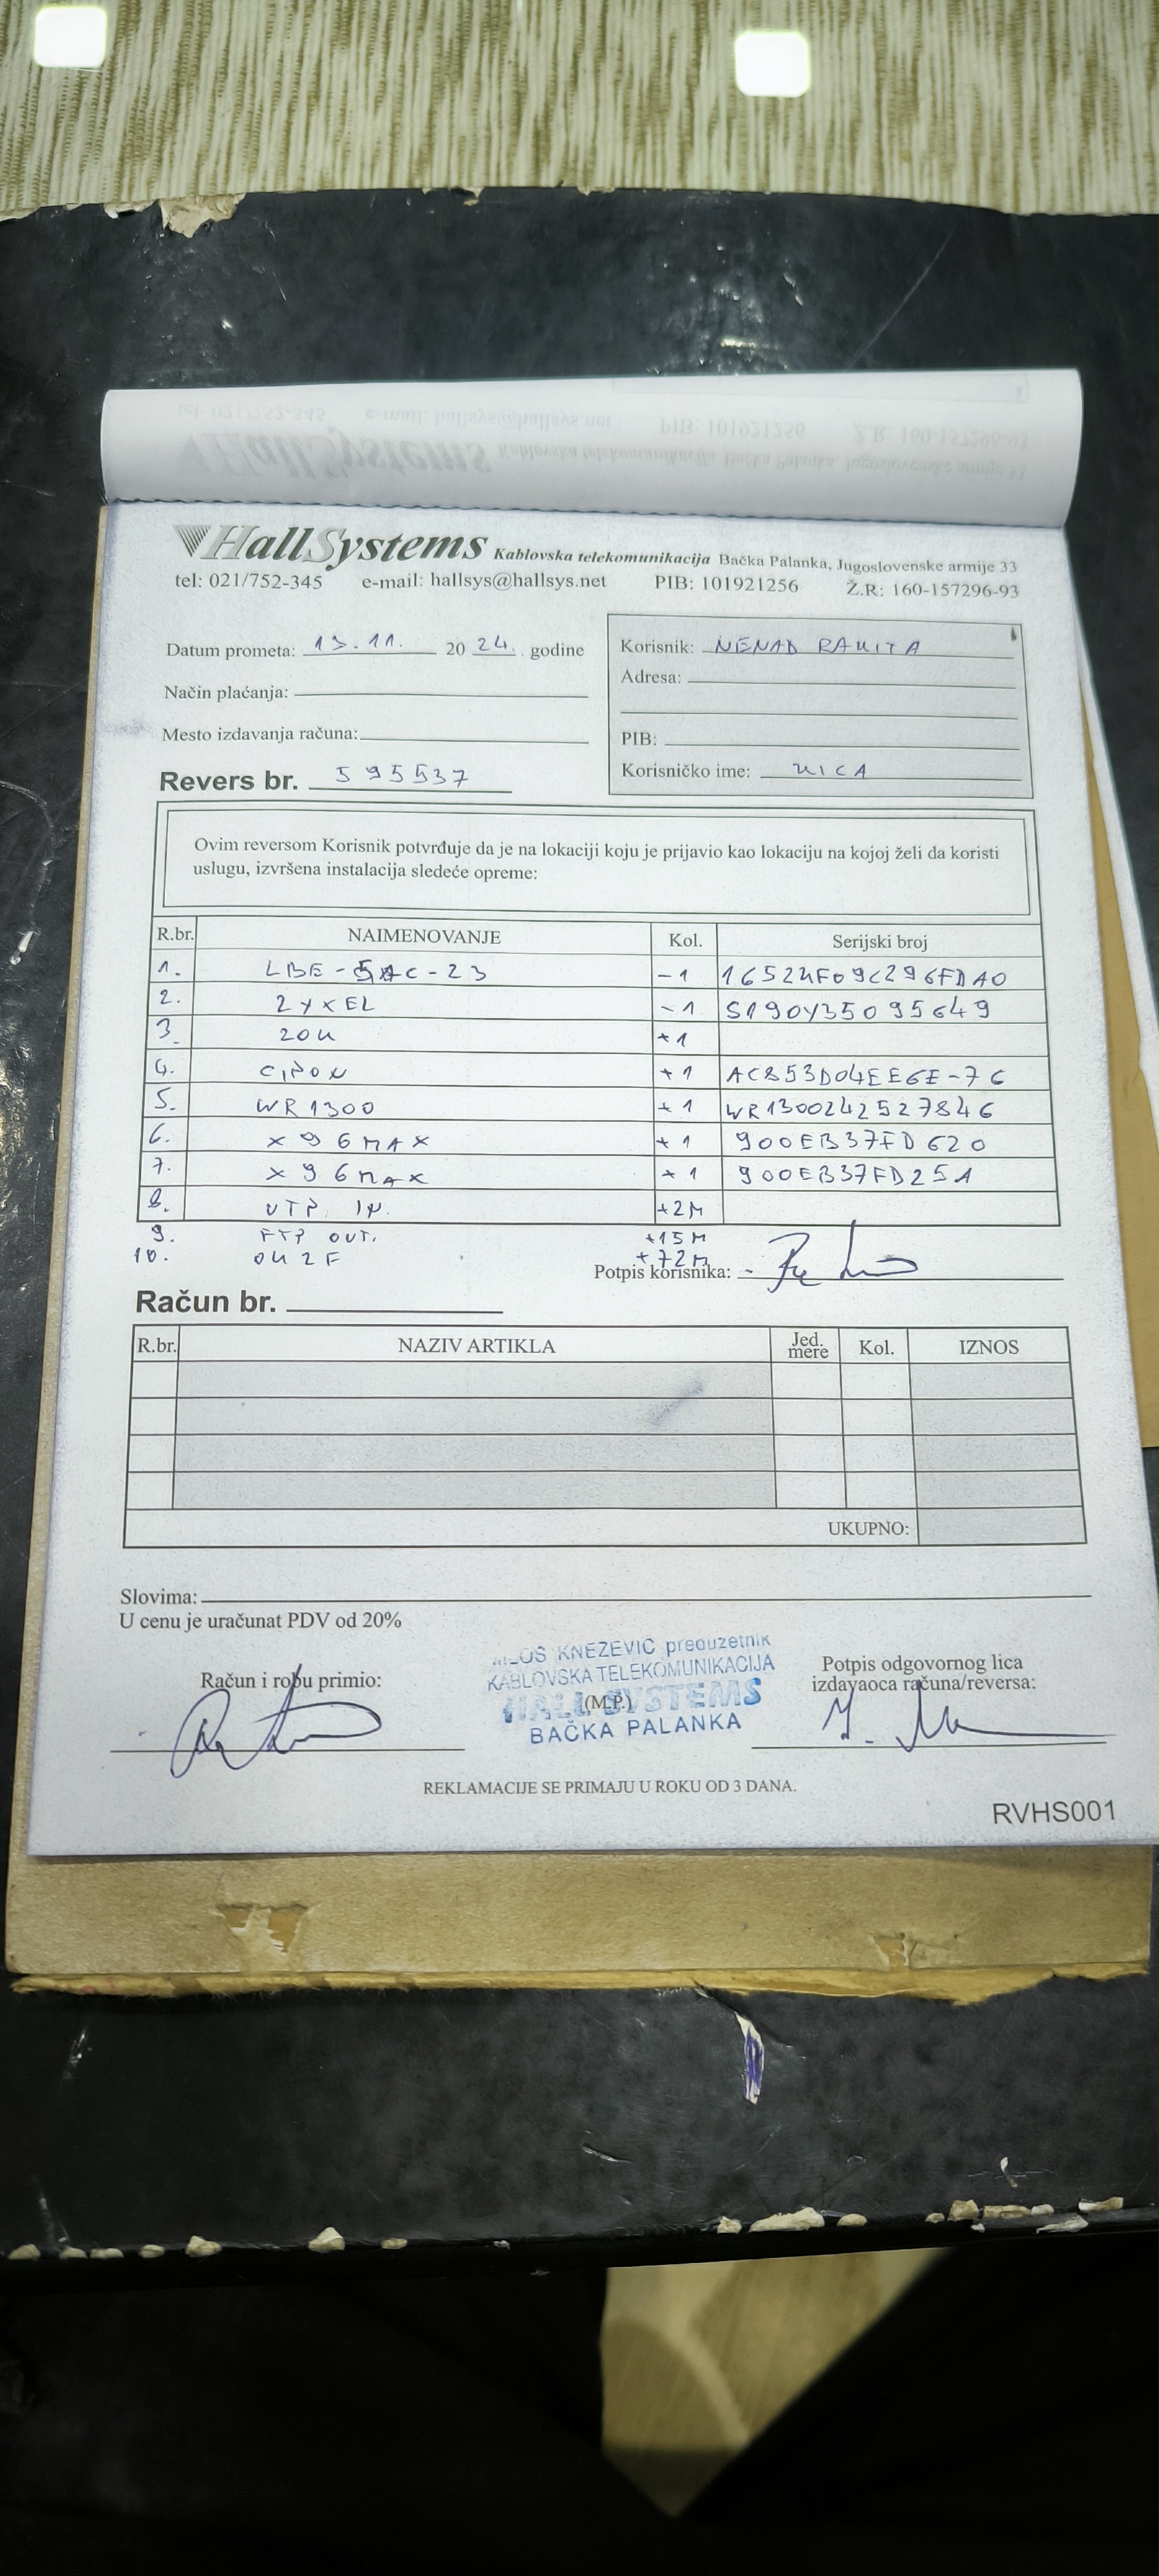 HallSystems Kablovska telekomunikacija Bačka Palanka, Jugoslovenske armije 33
tel: 021/752-345 e-mail: hallsys@hallsys.net PIB: 101921256 Ž.R: 160-157296-93
Datum prometa: 13.11. 20 24. godine
Način plaćanja:
Mesto izdavanja računa:
Revers br. 595537
Korisnik: NENAD
Adresa:
PIB:
Korisničko ime:
Ovim reversom Korisnik potvrđuje da je na lokaciji koju je prijavio kao lokaciju na kojoj želi da koristi
uslugu, izvršena instalacija sledeće opreme:
R.br. NAIMENOVANJE Kol. Serijski broj
1. LBE-5AC-23 -1
2. ZYXEL -1 S190Y35095649
3. +1
4. +1
5. WR1300 +1 WR1300242527846
6. X96MAX +1 900EB37FD620
7. X96MAX +1 900EB37FD25A
8. UTP IN. +2M
9. FTP OUT. +15M
10. +72M
Potpis korisnika:
Račun br.
R.br. NAZIV ARTIKLA Jed. mere Kol. IZNOS
UKUPNO:
Slovima:
U cenu je uračunat PDV od 20%
Račun i robu primio:
KNEZEVIC preduzetnik
KABLOVSKA TELEKOMUNIKACIJA
HALL SYSTEMS
(M.P.)
BAČKA PALANKA
Potpis odgovornog lica
izdavaoca računa/reversa:
REKLAMACIJE SE PRIMAJU U ROKU OD 3 DANA.
RVHS001